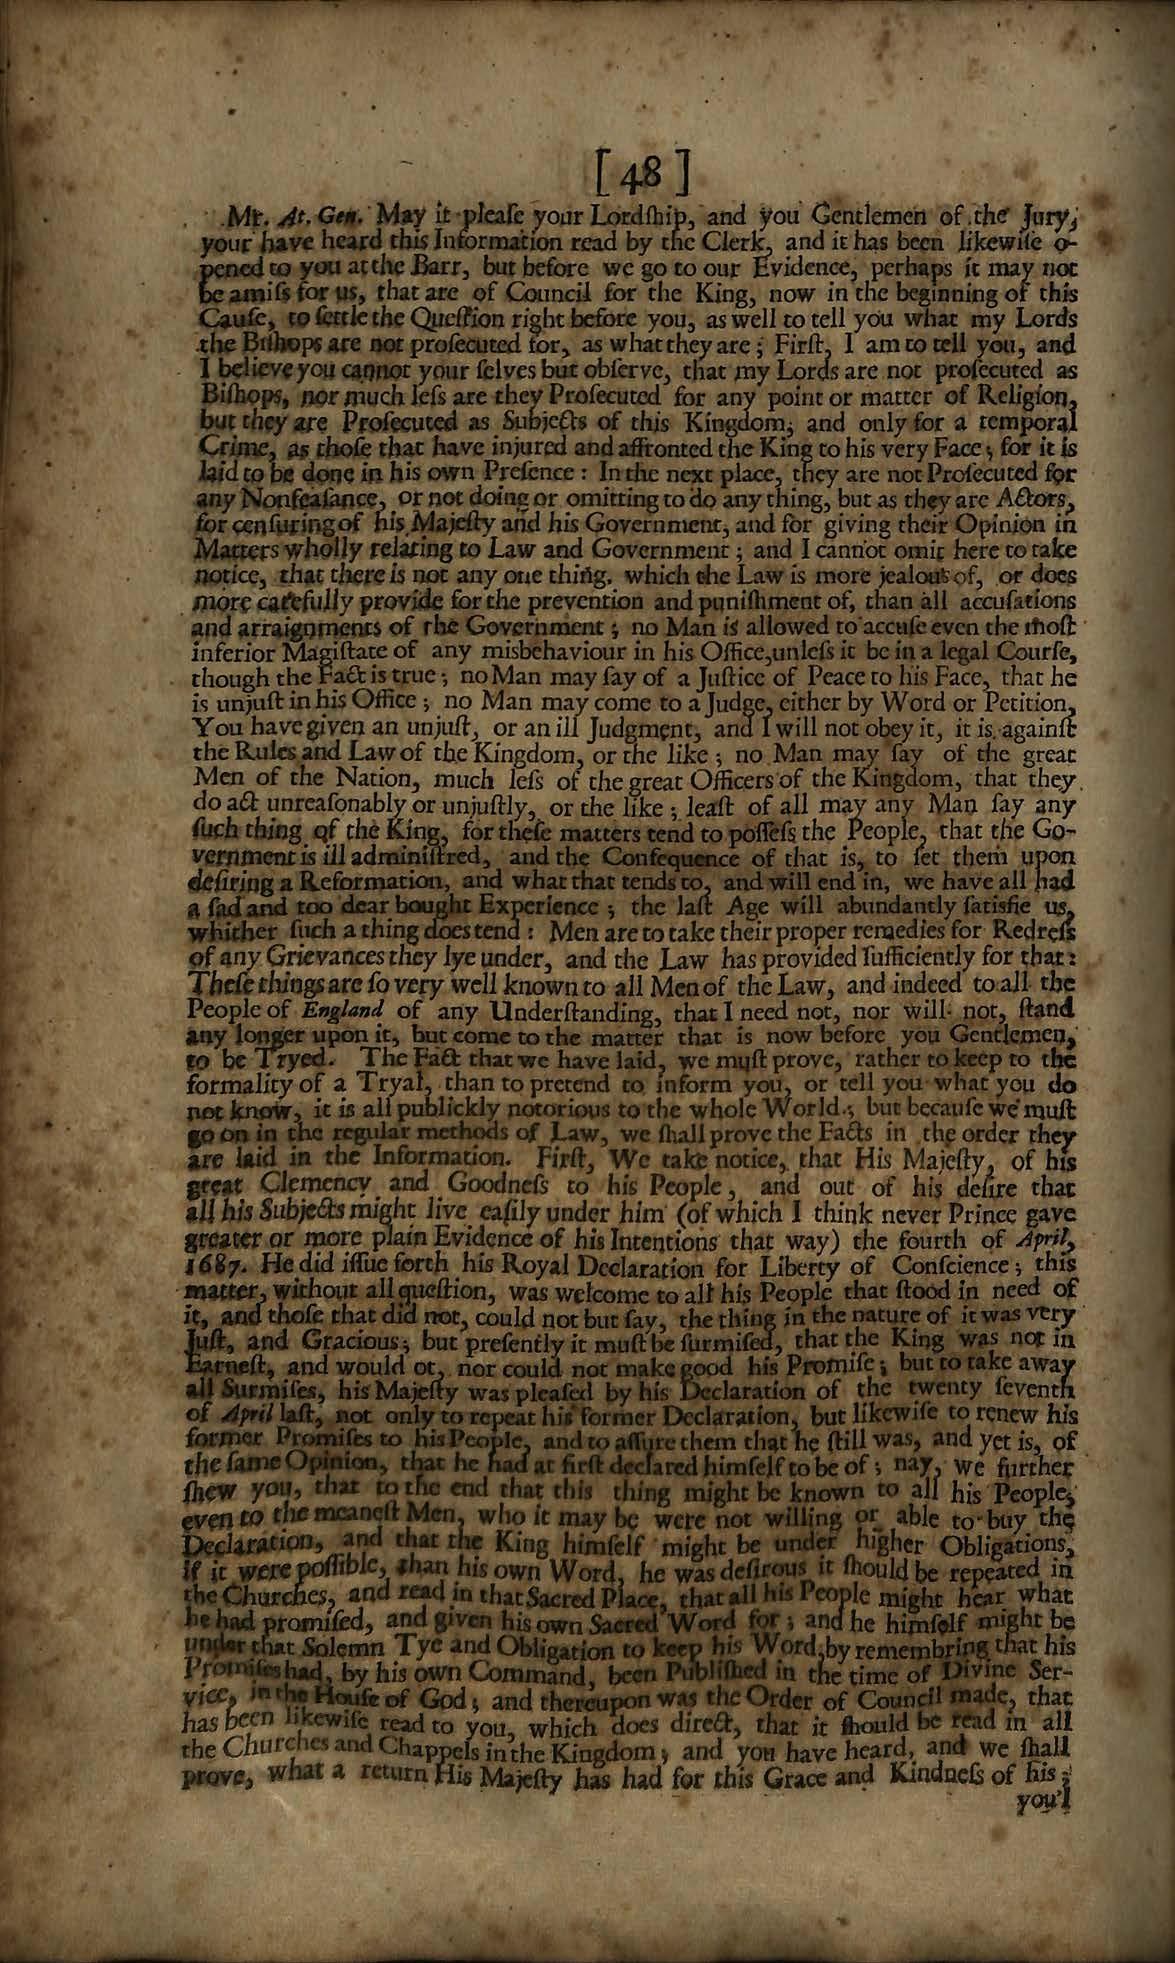 [ 48 ]
Mr. At. Gen. May it pleaſe your Lordſhip, and you Gentlemen of the Jury,
your have heard this Information read by the Clerk, and it has been likewiſe o-
pened to you at the Barr, but before we go to our Evidence, perhaps it may not
be amiſs for us, that are of Council for the King, now in the beginning of this
Cauſe, to ſettle the Queſtion right before you, as well to tell you what my Lords
the Biſhops are not proſecuted for, as what they are; Firſt, I am to tell you, and
I believe you cannot your ſelves but obſerve, that my Lords are not proſecuted as
Biſhops, nor much leſs are they Proſecuted for any point or matter of Religion,
but they are Proſecuted as Subjects of this Kingdom, and only for a temporal
Crime, as thoſe that have injured and affronted the King to his very Face; for it is
laid to be done in his own Preſence: In the next place, they are not Proſecuted for
any Nonfeaſance, or not doing or omitting to do any thing, but as they are Actors,
for cenſuring of his Majeſty and his Government, and for giving their Opinion in
Matters wholly relating to Law and Government; and I cannot omit here to take
notice, that there is not any one thing. which the Law is more jealous of, or does
more carefully provide for the prevention and puniſhment of, than all accuſations
and arraignments of rhe Government; no Man is allowed to accuſe even the moſt
inferior Magiſtate of any misbehaviour in his Office,unleſs it be in a legal Courſe,
though the Fact is true; no Man may ſay of a Juſtice of Peace to his Face, that he
is unjuſt in his Office; no Man may come to a Judge, either by Word or Petition,
You have given an unjuſt, or an ill Judgment, and I will not obey it, it is againſt
the Rules and Law of the Kingdom, or the like; no Man may ſay of the great
Men of the Nation, much leſs of the great Officers of the Kingdom, that they
do act unreaſonably or unjuſtly, or the like; leaſt of all may any Man ſay any
ſuch thing of the King, for theſe matters tend to poſſeſs the People, that the Go-
vernment is ill adminiſtred, and the Conſequence of that is, to ſet them upon
deſiring a Reformation, and what that tends to, and will end in, we have all had
a ſad and too dear bought Experience; the laſt Age will abundantly ſatisfie us,
whither ſuch a thing does tend: Men are to take their proper remedies for Redreſs
of any Grievances they lye under, and the Law has provided ſufficiently for that:
Theſe things are ſo very well known to all Men of the Law, and indeed to all the
People of England of any Underſtanding, that I need not, nor will not, ſtand
any longer upon it, but come to the matter that is now before you Gentlemen,
to be Tryed. The Fact that we have laid, we muſt prove, rather to keep to the
formality of a Tryal, than to pretend to inform you, or tell you what you do
not know, it is all publickly notorious to the whole World; but becauſe we muſt
go on in the regular methods of Law, we ſhall prove the Facts in the order they
are laid in the Information. Firſt, We take notice, that His Majeſty, of his
great Clemency and Goodneſs to his People, and out of his deſire that
all his Subjects might live eaſily under him (of which I think never Prince gave
greater or more plain Evidence of his Intentions that way) the fourth of April,
1687. He did iſſue forth his Royal Declaration for Liberty of Conſcience; this
matter, without all queſtion, was welcome to all his People that ſtood in need of
it, and thoſe that did not, could not but ſay, the thing in the nature of it was very
Juſt, and Gracious; but preſently it muſt be ſurmiſed, that the King was not in
Earneſt, and would ot, nor could not make good his Promiſe; but to take away
all Surmiſes, his Majeſty was pleaſed by his Declaration of the twenty ſeventh
of April laſt, not only to repeat his former Declaration, but likewiſe to renew his
former Promiſes to his People, and to aſſure them that he ſtill was, and yet is, of
the ſame Opinion, that he had at firſt declared himſelf to be of; nay, we further
ſhew you, that to the end that this thing might be known to all his People,
even to the meaneſt Men, who it may be were not willing or able to buy the
Declaration, and that the King himſelf might be under higher Obligations,
if it were poſſible, than his own Word, he was deſirous it ſhould be repeated in
the Churches, and read in that Sacred Place, that all his People might hear what
he had promiſed, and given his own Sacred Word for; and he himſelf might be
under that Solemn Tye and Obligation to keep his Word,by remembring that his
Promiſes had, by his own Command, been Publiſhed in the time of Divine Ser-
vice, in the Houſe of God; and thereupon was the Order of Council made, that
has been likewiſe read to you, which does direct, that it ſhould be read in all
the Churches and Chappels in the Kingdom; and you have heard, and we ſhall
prove, what a return His Majeſty has had for this Grace and Kindneſs of his;
you'l